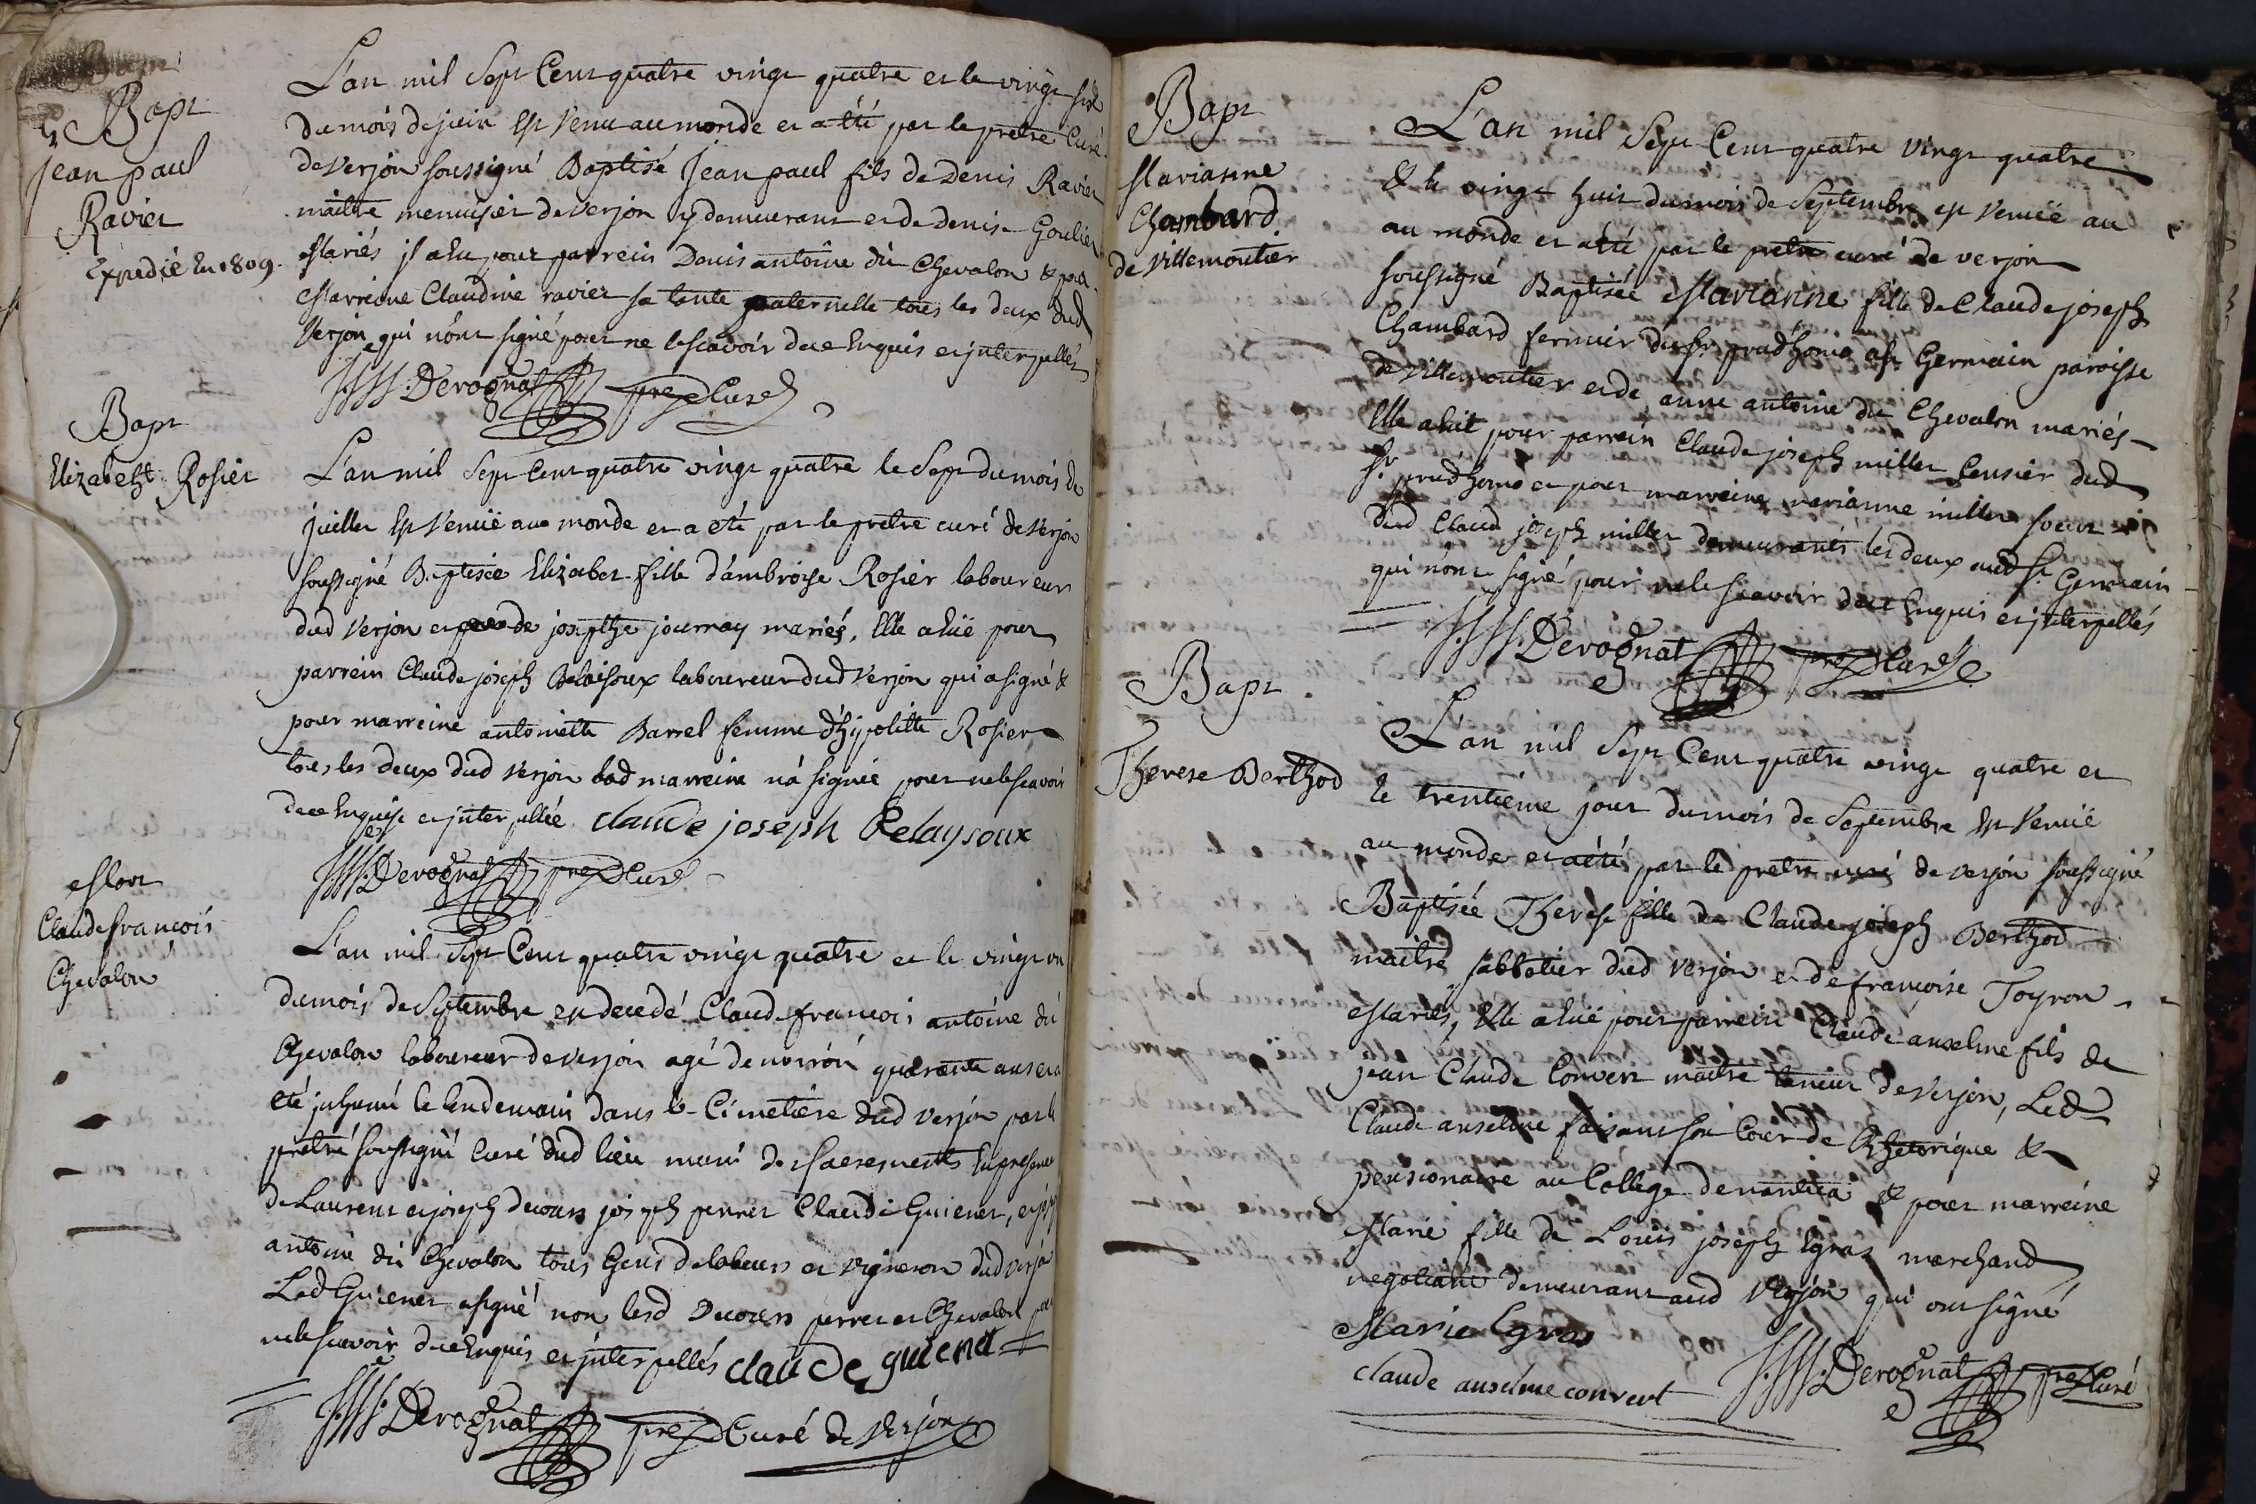 Bapt
jean paul
Ravier
Expedié En 1809.
L'an mil Sept Cent quatre vingt quatre et le vingt
du mois de juin Est Venu au monde et a été par le prêtre Curé
de Verjon soussigné Baptisé Jean paul fils de Denis Ravier
maitre menuisier de Verjon y demeurant et de Denise Goulier
Mariés il a Eu pour parrein Denis antoine dit Chevalon & pour
Marreine Claudine ravier sa tante paternelle tous les deux dud
Verjon qui n'ont signé pour ne le scavoir de ce Enquis et interpellés
Derognat ptre Curé
Bapt
Elizabeht Rosier
L'an mil Sept Cent quatre vingt quatre le Sept du mois de
juillet Est Venuë au monde et a été par le prêtre curé de Verjon
soussigné Baptisée Elizabet fille d'ambroise Rosier laboureur
dud Verjon et de josepthe journay mariés, Elle a Euë pour
parrein Claude joseph Belaisoux laboureur dud Verjon qui a signé &
pour marreine antoinette Barrel femme d'hypolitte Rosier
tous les deux dud Verjon lad marreine n'a signée pour ne le scavoir
de ce Enquise et interpellée claude joseph Belaysoux
Derognat ptre Curé
Mort
Claude francois
Chevalon
L'an mil Sept Cent quatre vingt quatre et le vingt un
du mois de Septembre est decedé Claude francois antoine dit
Chevalon laboureur de Verjon agé de environ quarante ans et a
été inhumé le lendemain dans le Cimetière dud Verjon par le
prêtre soussigné Curé dud lieu muni des sacrements En presence
de Laurent et joseph Decours joseph perret Claude Guienet, et
antoine dit Chevalon tous Gens de labeurs et vigneron dud Verjon
Led Guienet a signé non lesd Decours perret et Chevalon pour
ne le scavoir de ce Enquis et interpellés claude guienet
Derognat ptre Curé de Verjon
Bapt
Marianne
Chambard
de Villemoutier
L'an mil Sept Cent quatre vingt quatre
& le vingt huit du mois de Septembre est Venuë au
au monde et a été par le prêtre curé de verjon
soussigné Baptisée Marianne fille de Claude joseph
Chambard fermier du Sr. prudhome a St Germain paroisse
de Villemoutier et de anne antoine dit Chevalon mariés
Elle a Eut pour parrein Claude joseph millet Censier dud
Sr. prudhome et pour marreine marianne millet soeur
dud Claud joseph millet demeurants les deux aud St Germain
qui n'ont signé pour ne le scavoir de ce Enquis et interpellés
Derognat ptre Curé
Bapt
Therese Berthod
L'an mil Sept Cent quatre vingt quatre et
le trentieme jour du mois de Septembre Est Venuë
au monde et a été par le prêtre curé de verjon soussigné
Baptisée Therese fille de Claude joseph Berthod
maitre sabbotier dud Verjon et de françoise Toyron
Mariés, Elle a Euë pour parrein Claude anselme fils de
jean Claude Convert maitre taneur de Verjon, Led
Claude anselme faisant son Cour de Rhetorique &
pensionaire au College de nantua & pour marreine
Marie fille de Louis joseph Egraz marchand
negotiant demeurant aud Verjon qui ont signé
Marie Egraz
claude anselme convert
Derognat ptre Curé